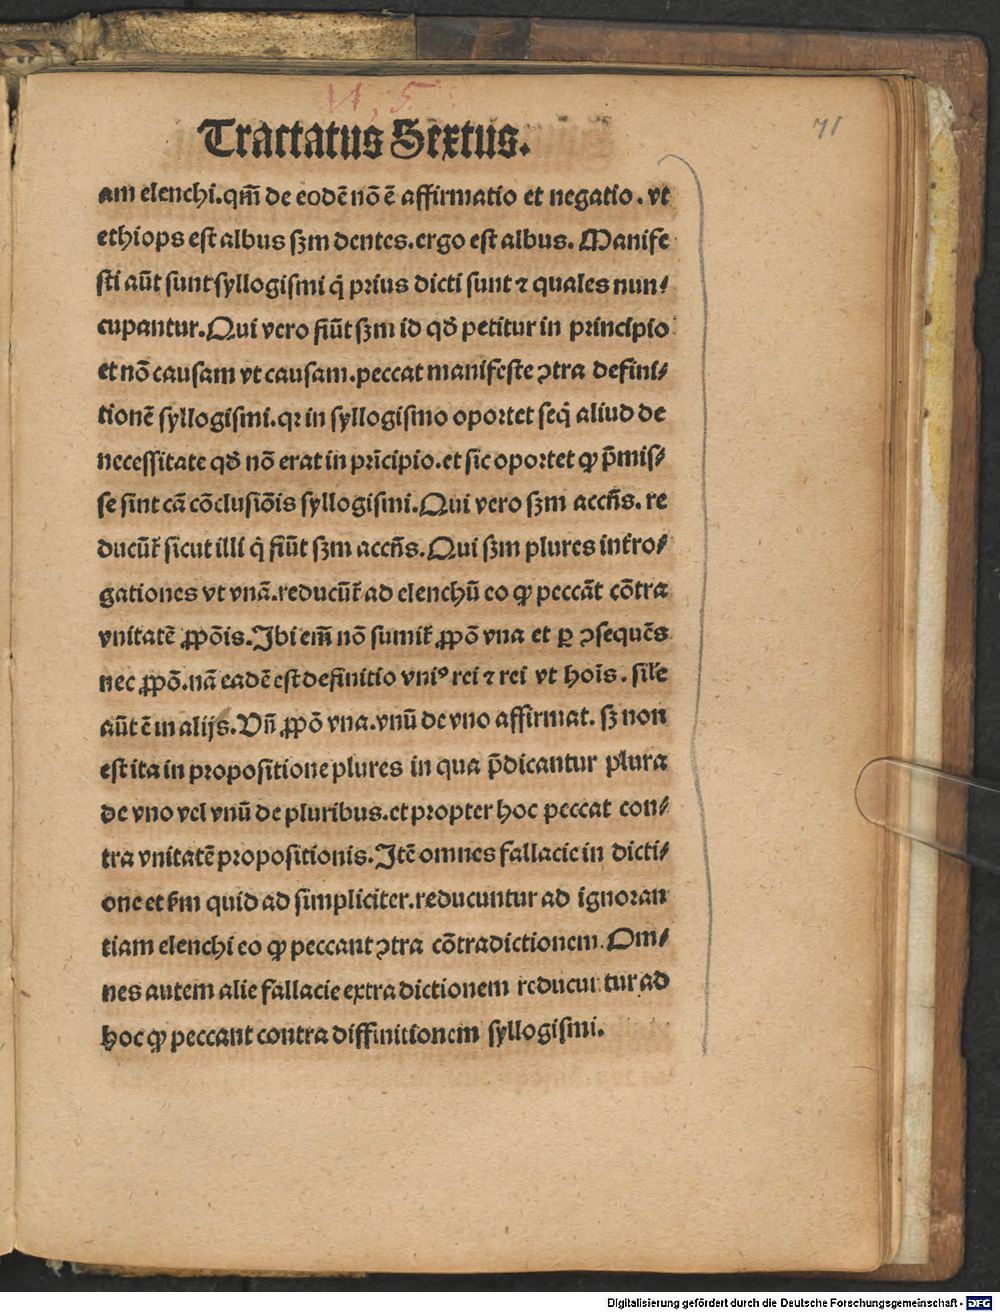 N, 5
71
Tractatus Sextus.
am elenchi.qm̄ de eodē nō ē affirmatio et negatio. vt
ethiops est albus ſꝫm dentes.ergo est albus. Manife
ſti aūt ſunt ſyllogiſmi q̄ prius dicti ſunt ⁊ quales nun⸗
cupantur.Qui vero fiūt ſꝫm id qđ petitur in principio
et nō cauſam vt cauſam.peccat manifeſte ꝯtra defini⸗
tionē ſyllogiſmi.qꝛ in ſyllogiſmo oportet ſeq̄ aliud de
neceſſitate qđ nō erat in prīcipio.et ſic oportet ꝙ p̄miſ⸗
ſe ſint cā cōcluſiōis ſyllogiſmi.Qui vero ſꝫm accn̄s. re
ducūt᷑ ſicut illi q̄ fiūt ſꝫm accn̄s.Qui ſꝫm plures int᷑ro⸗
gationes vt vnā.reducūt᷑ ad elenchū eo ꝙ peccāt cōtra
vnitatē ꝓpōis.Ibi em̄ nō ſumit᷑ ꝓpō vna et ꝑ ꝯſequēs
nec ꝓpō.nā eadē est definitio vniꝰ rei ⁊ rei vt hoīs. ſil̄e
aūt ē in alijs.Vn̄ ꝓpō vna.vnū de vno affirmat. ſꝫ non
est ita in propoſitione plures in qua p̄dicantur plura
de vno vel vnū de pluribus.et propter hoc peccat con⸗
tra vnitatē propoſitionis.Itē omnes fallacie in dicti⸗
one et ẜm quid ad ſimpliciter.reducuntur ad ignoran
tiam elenchi eo ꝙ peccant ꝯtra cōtradictionem.Om⸗
nes autem alie fallacie extra dictionem reducu tur ad
hoc ꝙ peccant contra diffinitionem ſyllogiſmi.
Digitalisierung gefördert durch die Deutsche Forschungsgemeinschaft - DFG